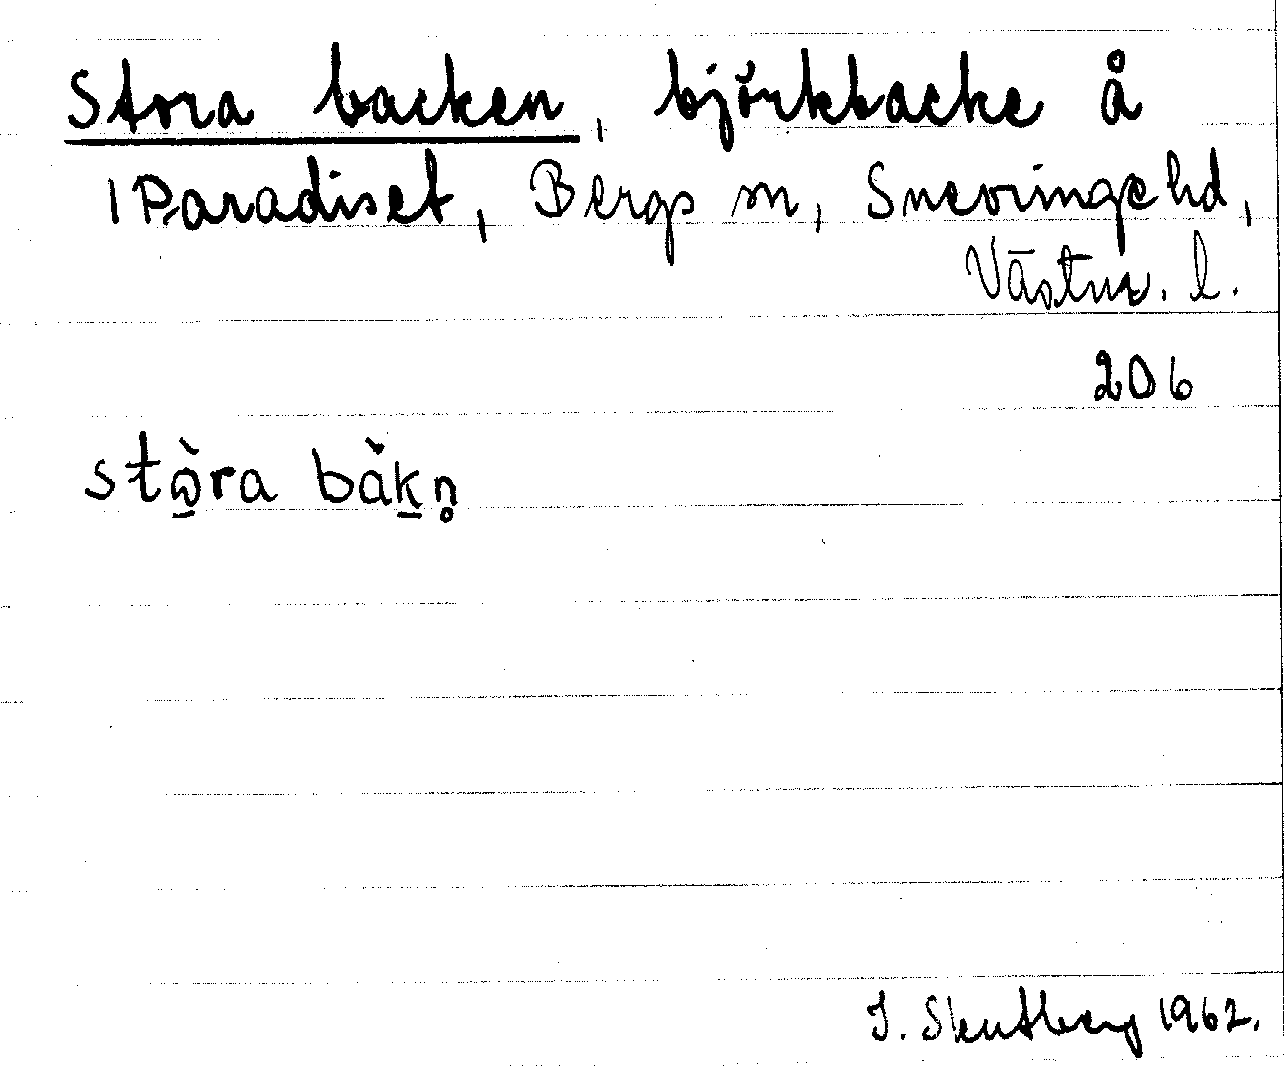 Stora backen, björkbacke å
1 Paradiset, Bergs sn, Snevringe hd,
Västm. l.
206
stò̱ra bàḵn̥
I. Skutberg 1962.